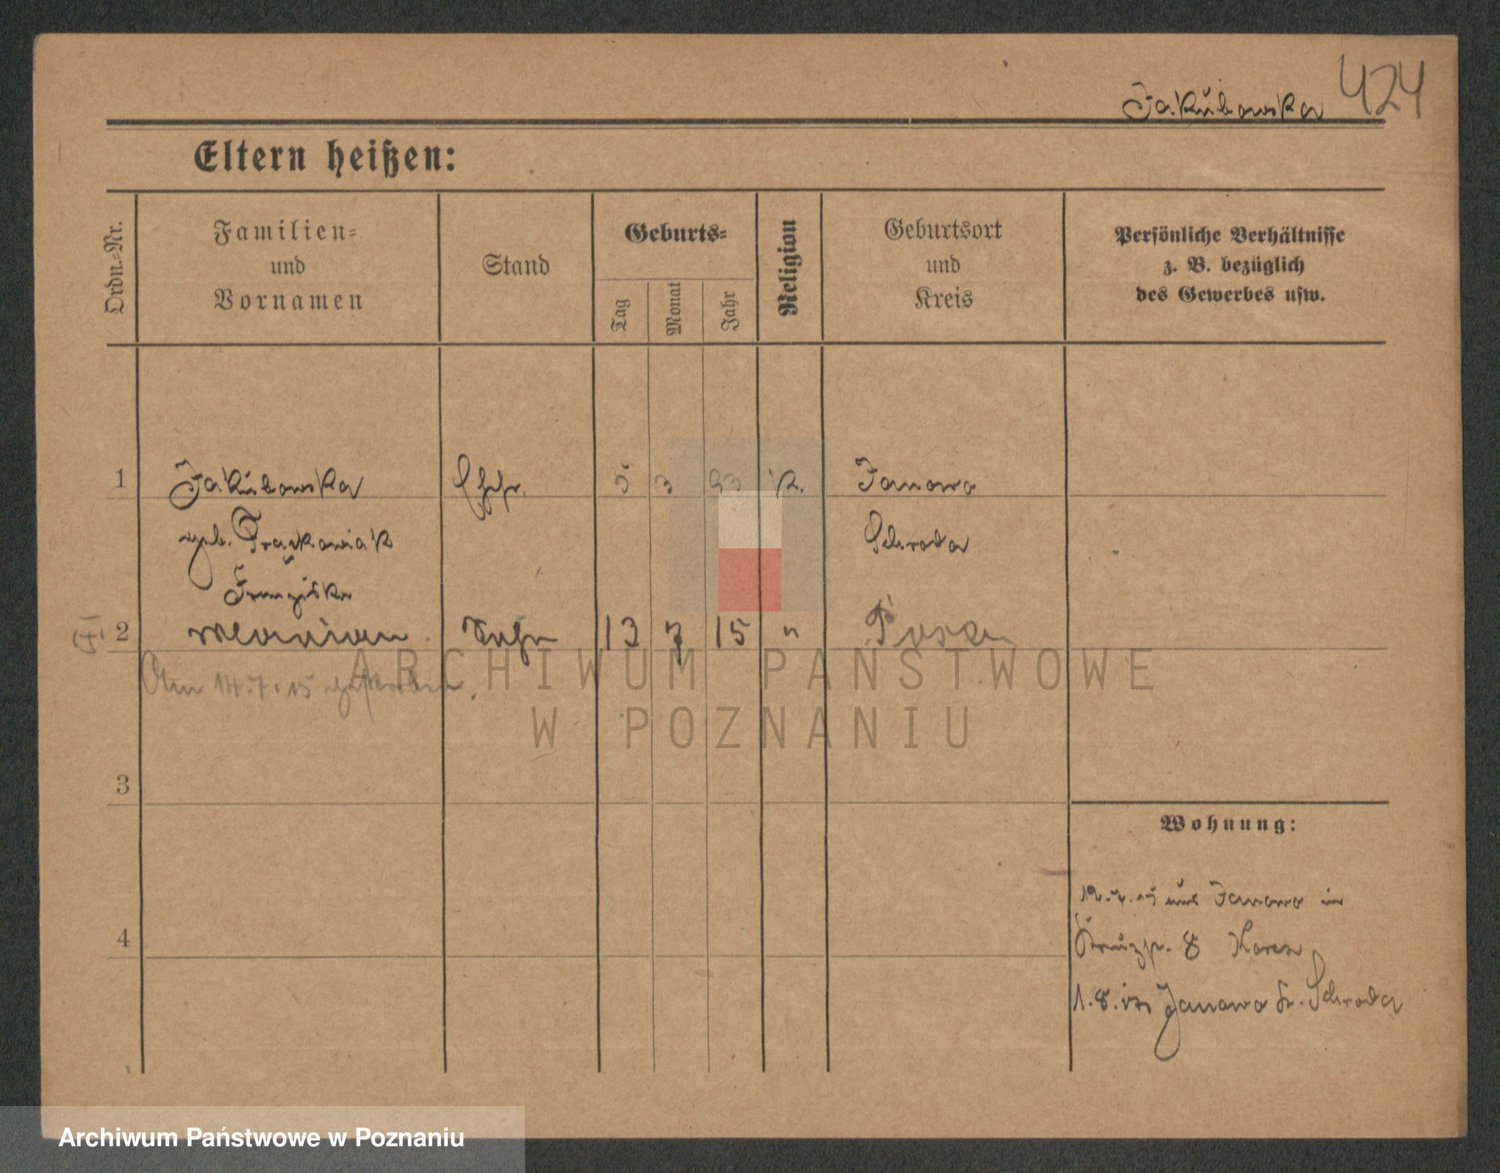 Jakubowska 424
Eltern heißen:
Ordn.-Nr.
Familien-
und
Vornamen
Stand
Geburts-
Tag
Monat
Jahr
Religion
Geburtsort
und
Kreis
Persönliche Verhältnisse
z. B. bezüglich
des Gewerbes usw.
1 Jakubowska Ehefr. 5 3 93 K. Janowo
geb. Frąckowiak Schroda
Franziska
2 Marian Sohn 13 7 15 " Posen
Am 14.7.15 gestorben.
ARCHIWUM PAŃSTWOWE
W POZNANIU
3
Wohnung:
12.7.15 aus Janowo in
4 8
1.8.15 Janowo Kr. Schroda
Archiwum Państwowe w Poznaniu